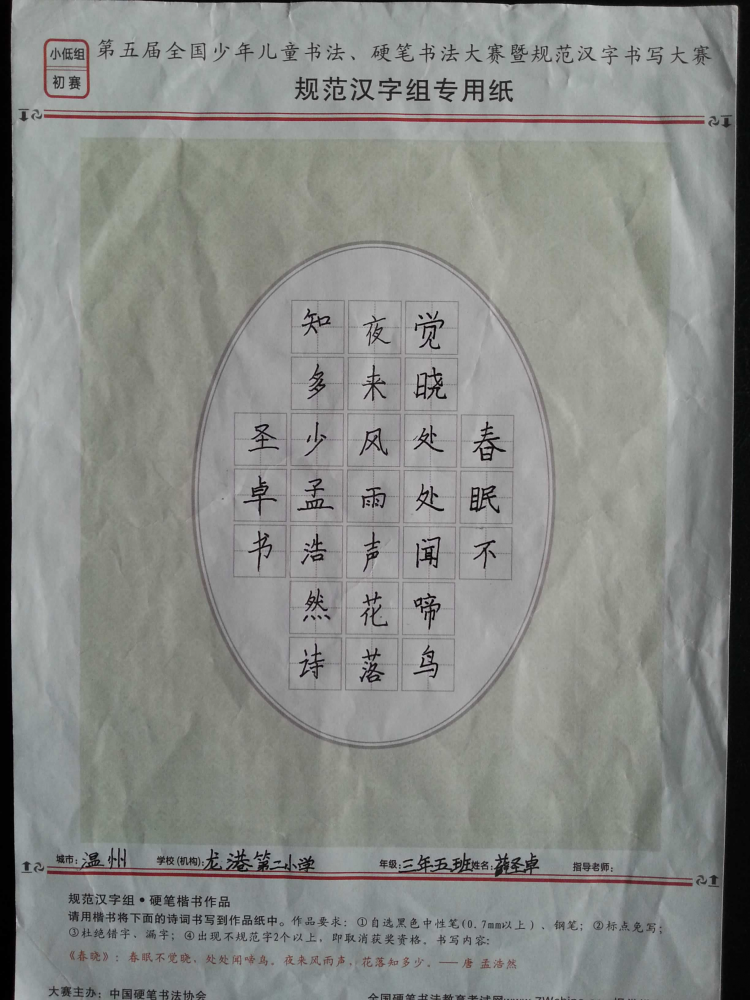 小低组
初赛
第五届全国少年儿童书法、硬笔书法大赛暨规范汉字书写大赛
规范汉字组专用纸
春眠不
觉晓处处闻啼鸟
夜来风雨声花落
知多少孟浩然诗
圣卓书
城市：温州 学校(机构)：龙港第二小学 年级：三年五班 姓名：圣卓 指导老师：
规范汉字组•硬笔楷书作品
请用楷书将下面的诗词书写到作品纸中。作品要求：①自选黑色中性笔(0.7mm以上)、钢笔；②标点免写；
③杜绝错字、漏字；④出现不规范字2个以上，即取消获奖资格。书写内容：
《春晓》：春眠不觉晓，处处闻啼鸟。夜来风雨声，花落知多少。——唐 孟浩然
大赛主办：中国硬笔书法协会 全国硬笔书法教育考试网